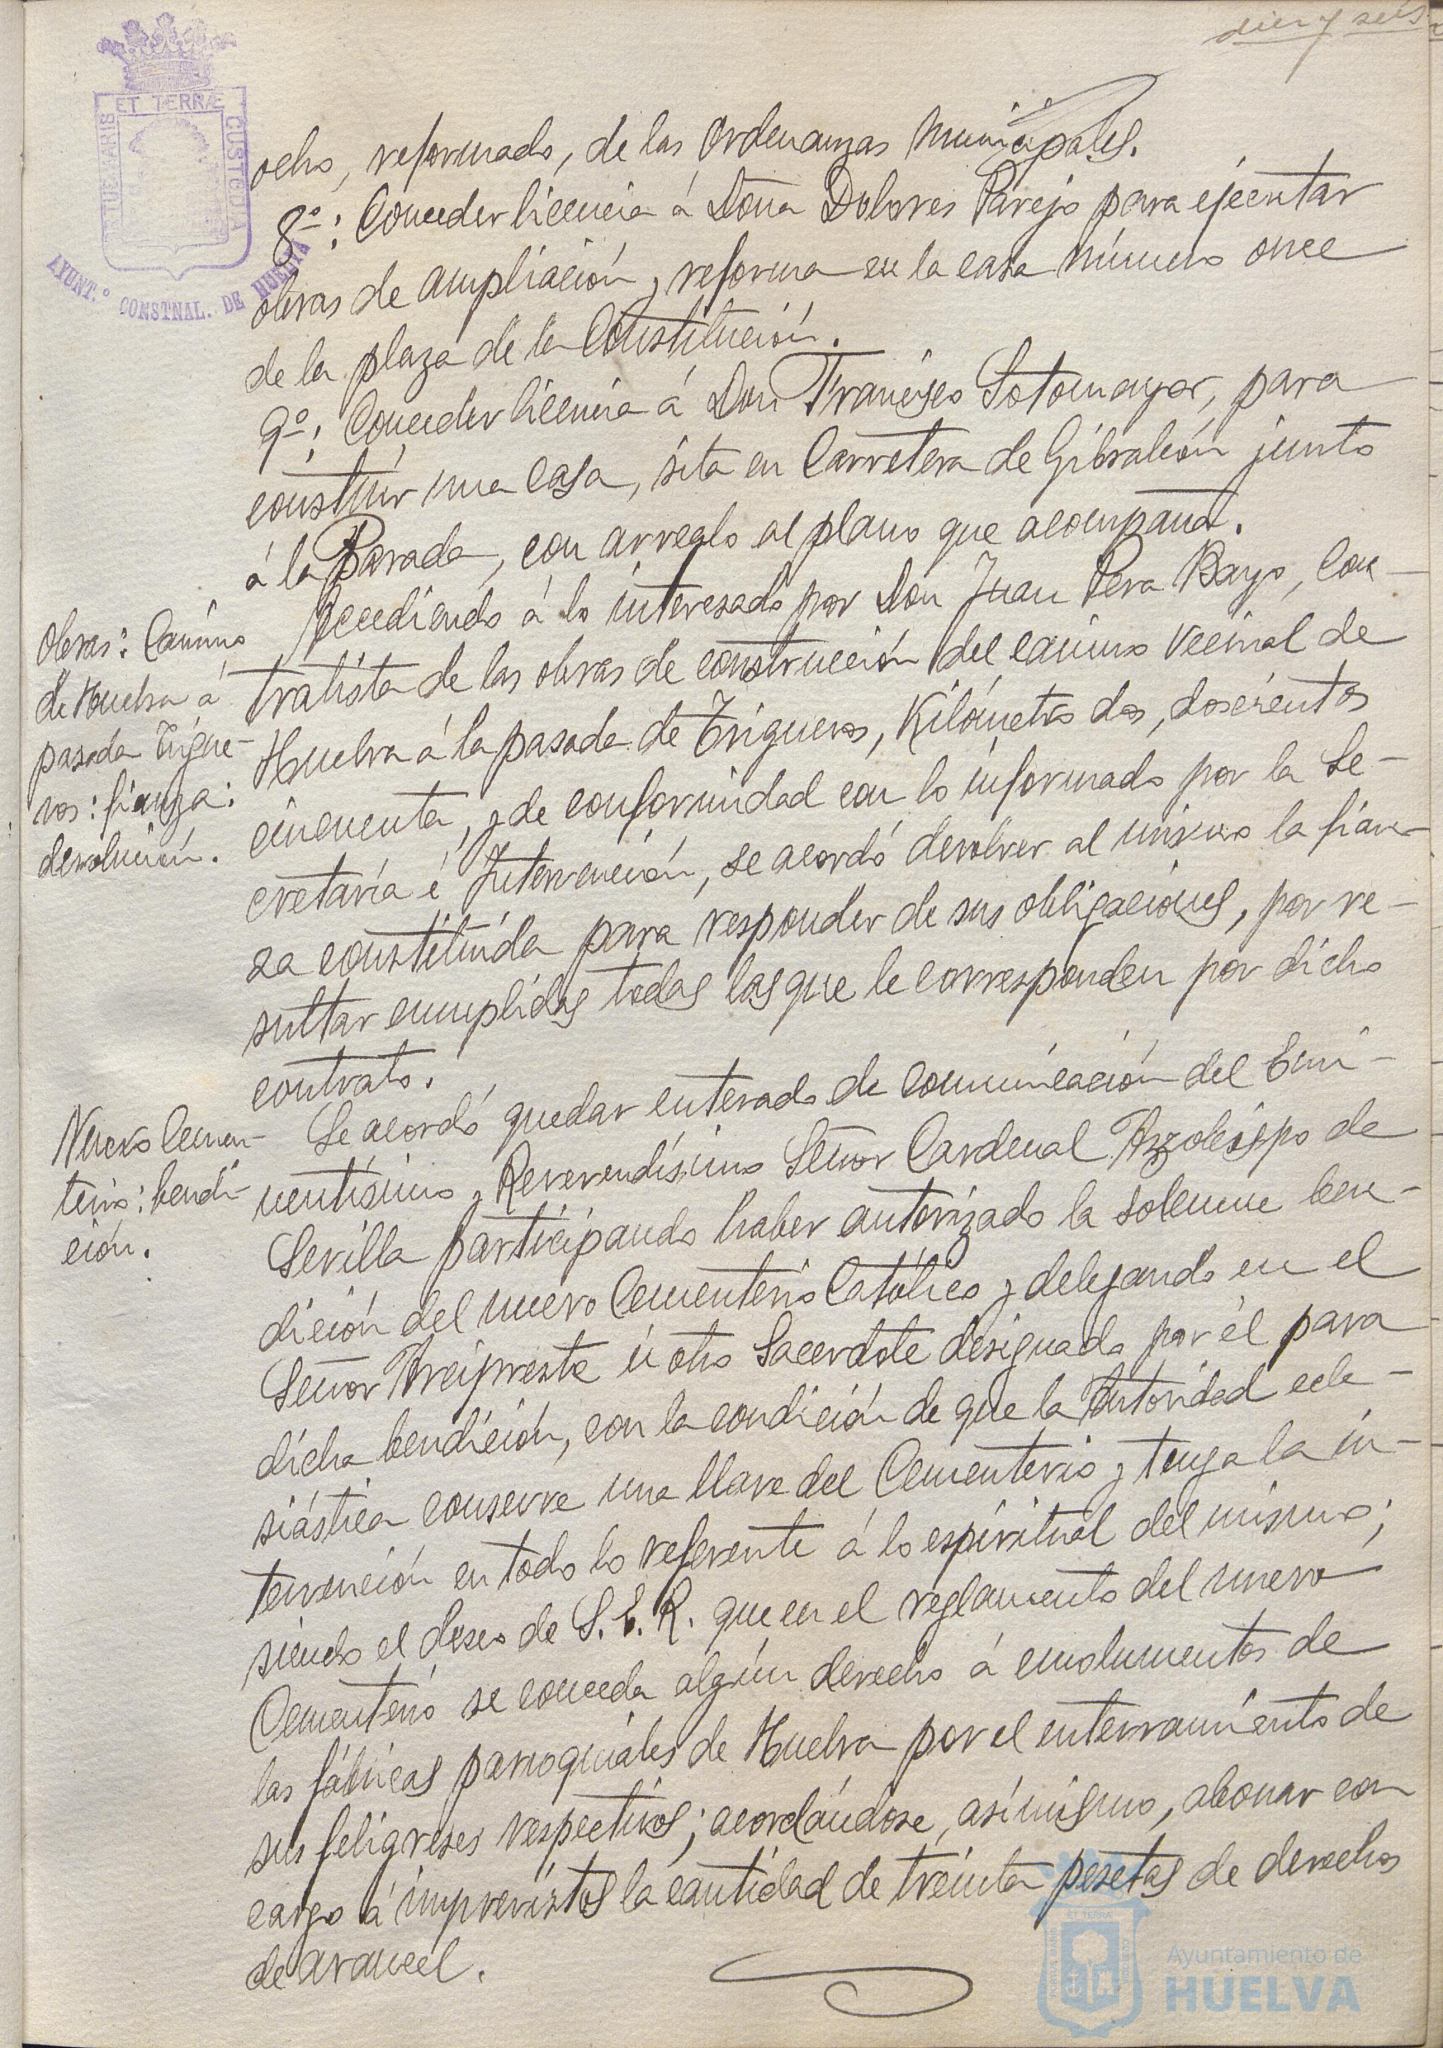 diez y seis
ET TERRÆ
TUE MARIS
CUSTODIA
AYUNT.º CONSTNAL. DE HUELVA
ocho, reformado, de las Ordenanzas Municipales.
8º: Conceder licencia á Doña Dolores Parejo para ejecutar
obras de ampliación y reforma en la casa número once
de la plaza de la Constitución.
9º: Conceder licencia á Don Francisco Sotomayor, para
construir una casa, sita en Carretera de Gibraleón junto
á la Parada, con arreglo al plano que acompaña.
Obras: Camino
de Huelva á
pasada Trigue-
ros: fianza:
devolución.
Accediendo á lo interesado por Don Juan Pera Bayo, con-
tratista de las obras de construcción del camino vecinal de
Huelva á la pasada de Trigueros, Kilómetro dos, doscientos
cincuenta, y de conformidad con lo informado por la Se-
cretaría é Intervención, se acordó devolver al mismo la fian-
za constituída para responder de sus obligaciones, por re-
sultar cumplidas todas las que le corresponden por dicho
contrato.
Nuevo Cemen-
terio: bendi-
ción.
Se acordó quedar enterado de comunicación del Emi-
nentísimo y Reverendísimo Señor Cardenal Arzobispo de
Sevilla participando haber autorizado la solemne ben-
dición del nuevo Cementerio Católico y delegando en el
Señor Arcipreste ú otro Sacerdote designado por él para
dicha bendición, con la condición de que la Autoridad ecle-
siástica conserve una llave del Cementerio y tenga la in-
tervención en todo lo referente á lo espiritual del mismo;
siendo el deseo de S. E. R. que en el reglamento del nuevo
Cementerio se conceda algún derecho á emolumentos de
las fábricas parroquiales de Huelva por el enterramiento de
sus feligreses respectivos; acordándose, asímismo, abonar con
cargo á imprevistos la cantidad de treinta pesetas de derechos
de arancel.
Ayuntamiento de
HUELVA